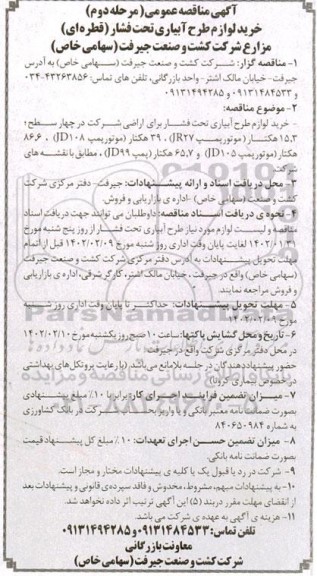 آگهی مناقصه عمومی (مرحله دوم)
خرید لوازم طرح آبیاری تحت فشار (قطره‌ای)
مزارع شرکت کشت و صنعت جیرفت (سهامی خاص)
۱- مناقصه گزار: شرکت کشت و صنعت جیرفت (سهامی خاص) به آدرس
جیرفت- خیابان مالک اشتر- واحد بازرگانی، تلفن های تماس: ۴۳۲۶۳۸۵۶-۰۳۴
و ۰۹۱۳۱۴۸۴۵۳۳ و ۰۹۱۳۱۴۹۴۲۸۵
۲- موضوع مناقصه:
- خرید لوازم طرح آبیاری تحت فشار برای اراضی شرکت در چهار سطح؛
۱۵,۳ هکتار (موتورپمپ JR۲۷)، ۳۹ هکتار (موتورپمپ JD۱۰۸)، ۸۶,۶
هکتار (موتورپمپ JD۱۰۵) و ۶۵,۷ هکتار (پمپ JD۹۹)، مطابق با نقشه های
۳- محل دریافت اسناد و ارائه پیشنهادات: جیرفت- دفتر مرکزی شرکت
کشت و صنعت (سهامی خاص) -اداره ی بازاریابی و فروش.
۴- نحوه ی دریافت اسناد مناقصه: داوطلبان می توانند جهت دریافت اسناد
مناقصه و لیست لوازم مورد نیاز طرح آبیاری تحت فشار از روز پنج شنبه مورخ
۱۴۰۲/۰۱/۳۱ لغایت پایان وقت اداری روز شنبه مورخ ۱۴۰۲/۰۲/۰۹ قبل از اتمام
مهلت تحویل پیشنهادات به آدرس دفتر مرکزی شرکت کشت و صنعت جیرفت
(سهامی خاص) واقع در جیرفت، خیابان مالک اشتر، کارگر شرقی، اداره ی بازاریابی
و فروش مراجعه نمایند.
۵- مهلت تحویل پیشنهادات: حداکثر تا پایان وقت اداری روز شنبه
مورخ ۱۴۰۲/۰۲/۰۹
۶- تاریخ و محل گشایش پاکتها: ساعت ۱۰ صبح روز یکشنبه مورخ ۱۴۰۲/۰۲/۱۰
در محل دفتر مرکزی شرکت واقع در جیرفت.
حضور پیشنهاددهندگان در جلسه بلامانع می باشد. (با رعایت پروتکل‌های بهداشتی
در خصوص بیماری کرونا)
۷- میزان تضمین فرآیند اجرای کار: برابر با ۱۰٪ مبلغ پیشنهادی
بصورت ضمانت نامه معتبر بانکی و یا واریز به شرکت در بانک کشاورزی
به شماره ۸۴۰۶۵۰۹۸۴
۸- میزان تضمین حسن اجرای تعهدات: ۱۰٪ مبلغ کل پیشنهاد قیمت
بصورت ضمانت نامه بانکی.
۹- شرکت در رد یا قبول یک یا کلیه ی پیشنهادات مختار و مجاز است.
۱۰- به پیشنهادات مبهم، مشروط، مخدوش و فاقد سپرده ی قانونی و پیشنهادات بعد
از انقضای مهلت مقرر در بند (۵) این آگهی ترتیب اثر داده نخواهد شد.
۱۱- هزینه ی آگهی به عهده ی شرکت می باشد.
تلفن تماس: ۰۹۱۳۱۴۸۴۵۳۳ و ۰۹۱۳۱۴۹۴۲۸۵
معاونت بازرگانی
شرکت کشت و صنعت جیرفت (سهامی خاص)